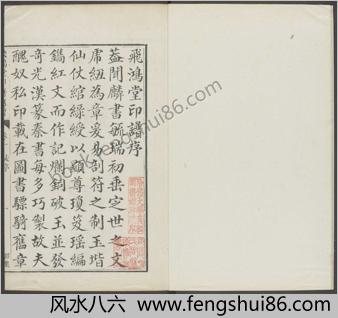 飛鴻堂印譜序
葢聞麟書毓瑞初垂定世之文
虎紐為章爰易剖符之制玉堦
仙仗綰綠綬以顯尊瓊笈瑶編
鐫紅文而作記爛銅破玉並發
奇光漢篆秦書每多巧製故夫
醜奴私印載在圖書驃騎舊章
风水八六 www.fengshui86.com